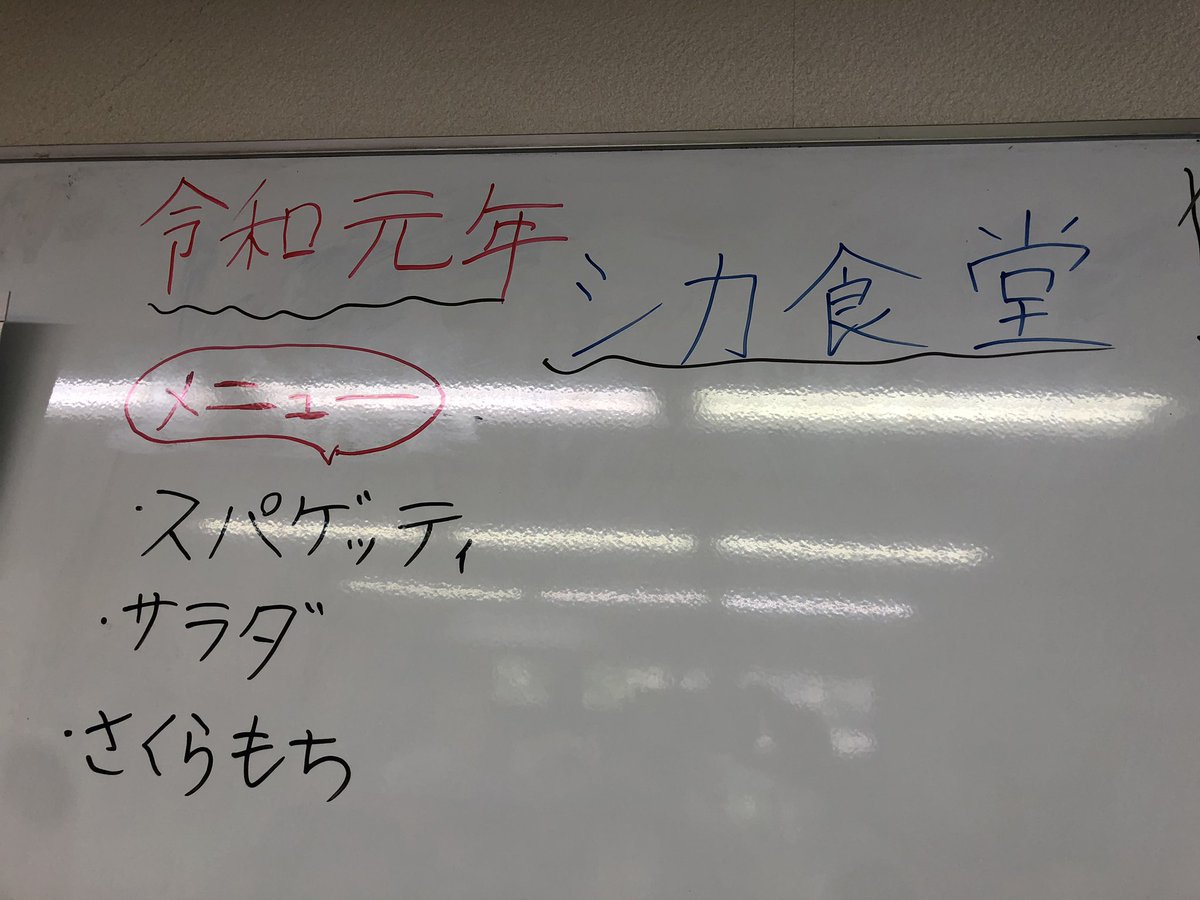 令和元年
シカ食堂
メニュー
・スパゲッティ
・サラダ
・さくらもち